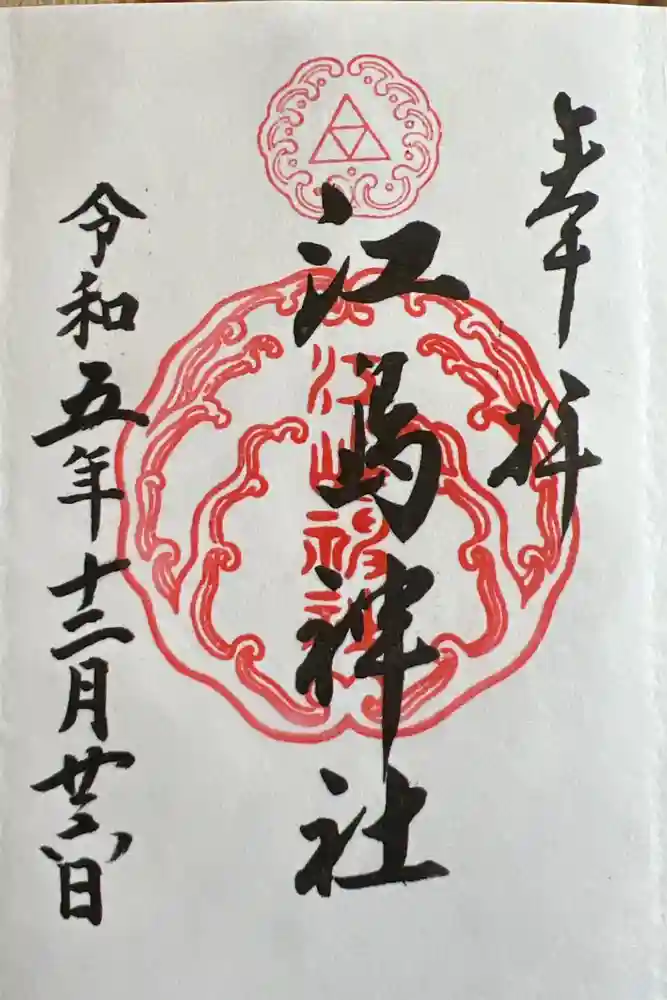 奉拝
江島神社
江島神社
令和五年十二月廿六日